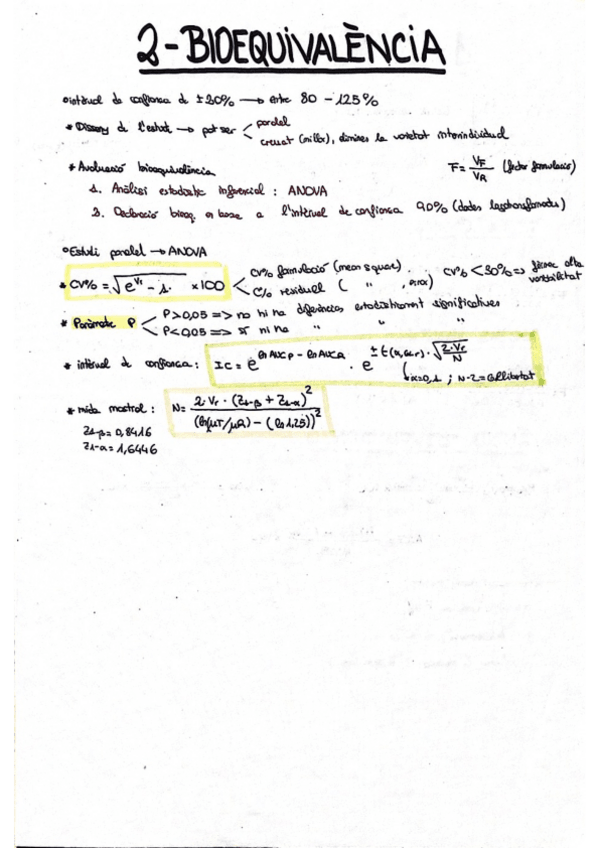 2-BIOEQUIVALÈNCIA
interval de confiança de ±20% → entre 80 - 125%
* Disseny de l'estudi → pot ser < paral·lel
creuat (millor), elimines la varietat interindividual
* Avaluació bioequivalència F = VF/VR (factor formulació)
1. Anàlisi estadístic inferencial : ANOVA
2. Declaració bioeq. en base a l'interval de confiança 90% (dades logtransformades)
°Estudi paral·lel → ANOVA
* CV% = √(e^Vr - 1) × 100 < CV% formulació (mean square). CV% < 30% => fàrmac alta variabilitat
C% residual ( " , error)
* Paràmetre P < P>0,05 => no hi ha diferències estadísticament significatives
P<0,05 => sí hi ha " " "
* interval de confiança : IC = e^(ln AUCP - ln AUCR) · e^(±t(α,G.L.r)·√(2·Vr/N))
↳ α=0,1 ; N-2=G.llibertat
* mida mostral : N = 2·Vr·(Z1-β + Z1-α)² / (ln(μT/μR) - (ln 1,25))²
Z1-β = 0,8416
Z1-α = 1,6446